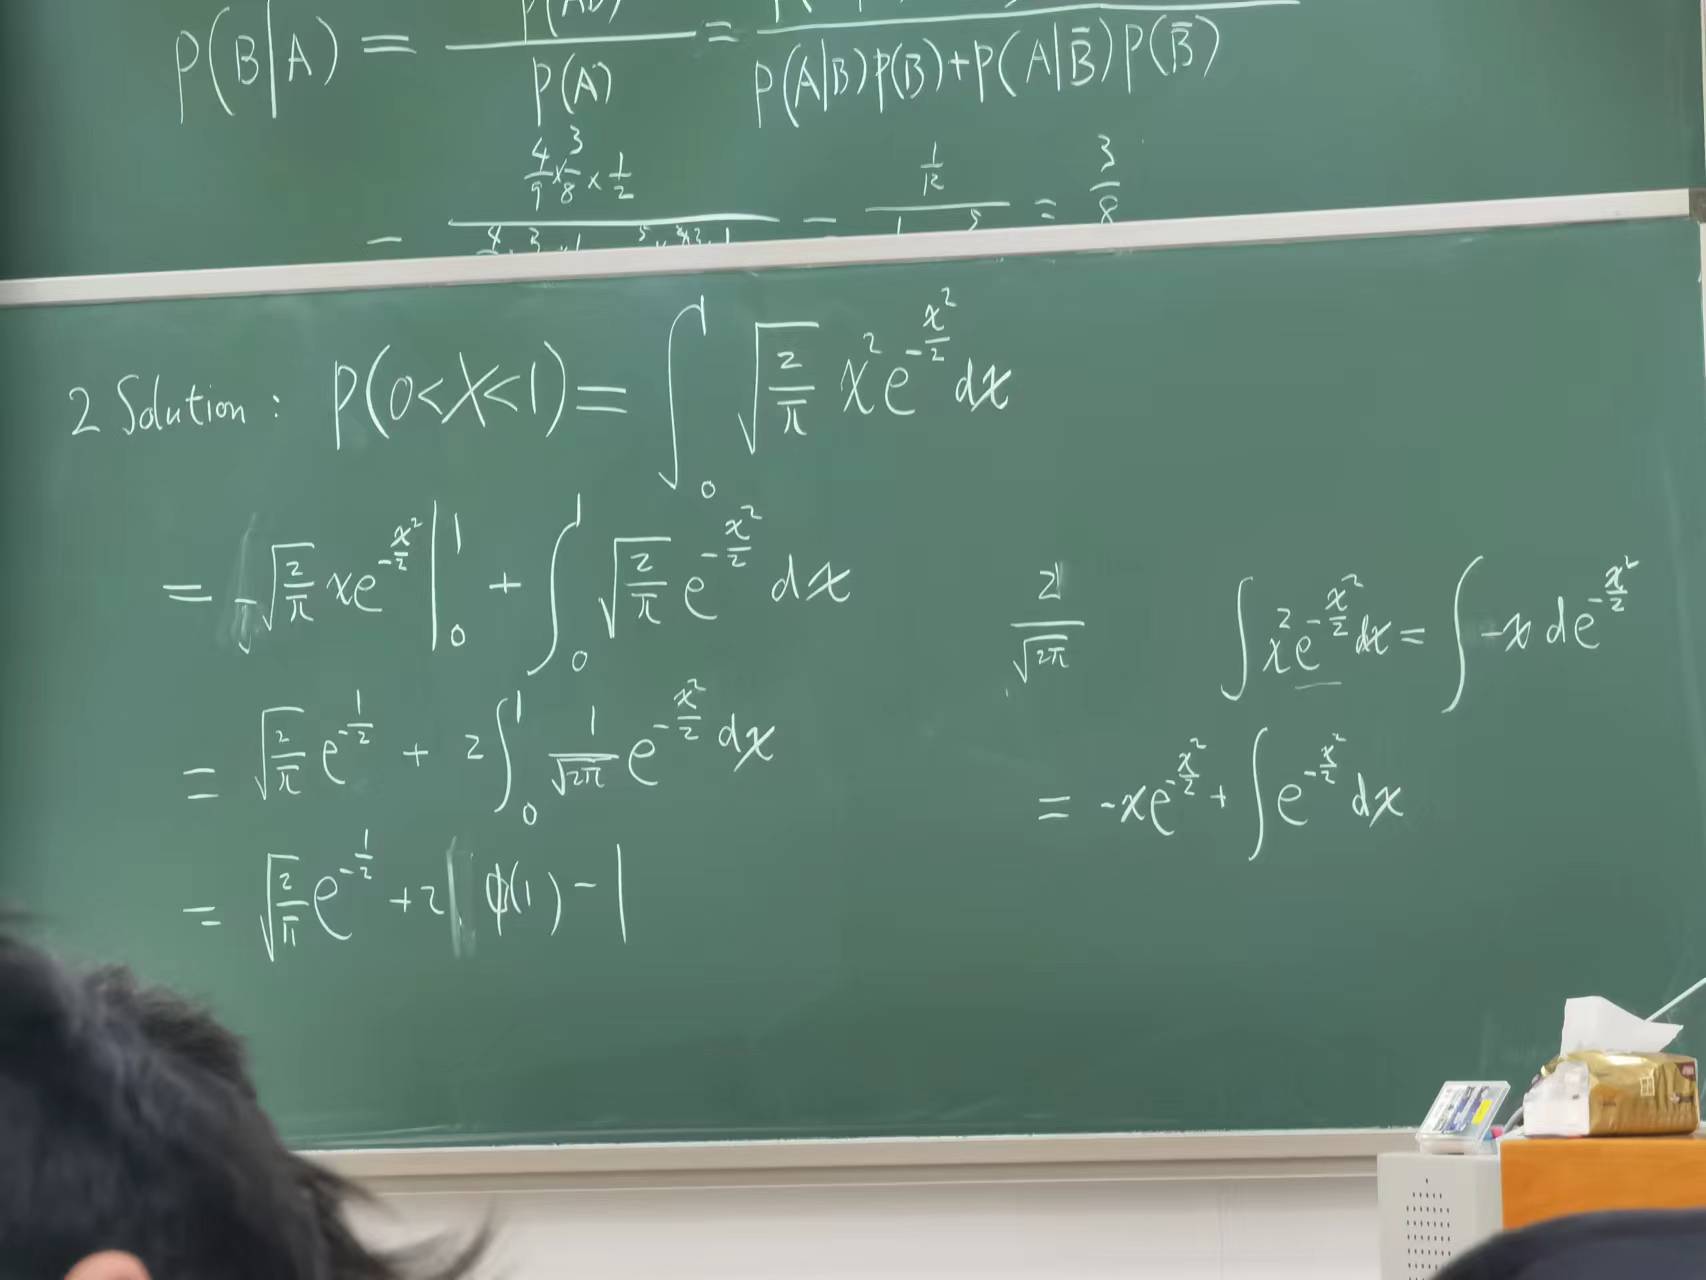 P(B|A) = P(AB) / P(A) = / P(A|B)P(B)+P(A|B̄)P(B̄)
= 4/9 × 3/8 × 1/2 / = 1/12 / = 3/8
2 Solution: P(0<X<1) = ∫₀¹ √(2/π) x² e^(-x²/2) dx
= -√(2/π) x e^(-x²/2) |₀¹ + ∫₀¹ √(2/π) e^(-x²/2) dx
= √(2/π) e^(-1/2) + 2 ∫₀¹ 1/√(2π) e^(-x²/2) dx
= √(2/π) e^(-1/2) + 2 φ(1) - 1
2/√(2π)
∫ x² e^(-x²/2) dx = ∫ -x d e^(-x²/2)
= -x e^(-x²/2) + ∫ e^(-x²/2) dx